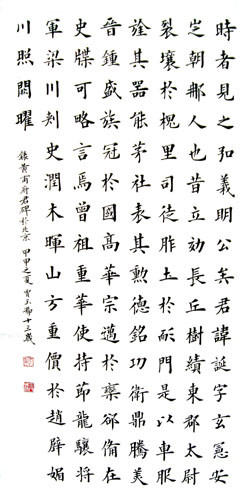 時者見之弘義明公矣君諱誕字玄憲安
定朝那人也昔立効長丘樹績東郡太尉
裂壤於槐里司徒胙土於耏門是以車服
旌其器能茅社表其勳德銘功衛鼎騰美
晉鍾盛族冠於國高華宗邁於欒郤備在
史牒可略言焉曾祖重華使持節龍驤將
軍梁州刺史潤木暉山方重價於趙璧媚
川照闕曜
錄黃甫府君碑於北京 甲申之夏 十三歲